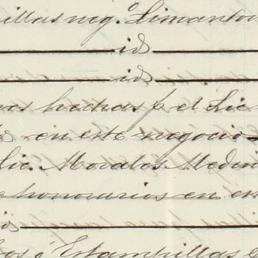 illas neg.º Limantou
id
id
vas hechas p.r el Lic
en este negocio
Lic. Morales Medin
honorarios en es
os ó Estampillas